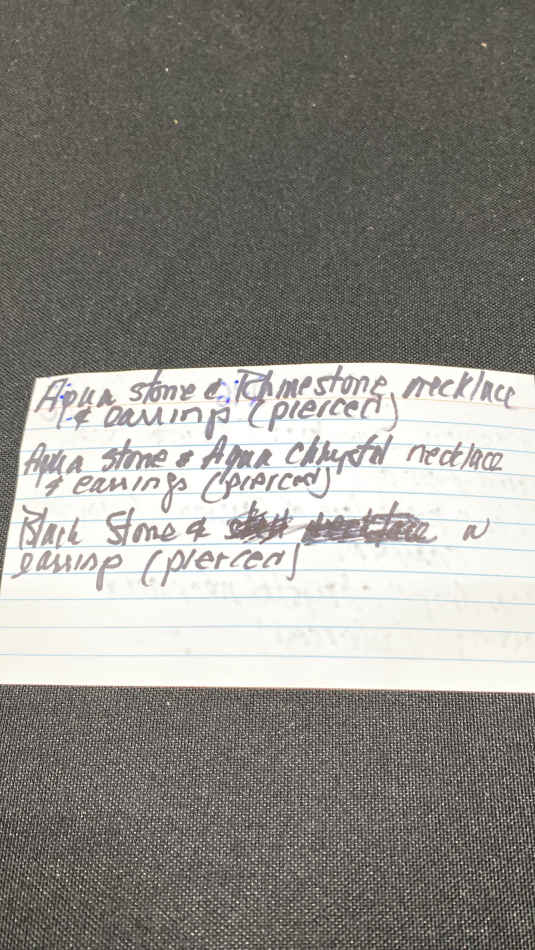 Aqua stone & Rhinestone necklace
& earrings (pierced)
Aqua stone & Aqua Chrystal necklace
& earrings (pierced)
Black Stone &
earrings (pierced)